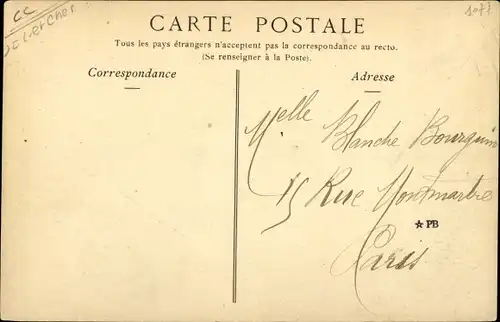 CARTE POSTALE
Tous les pays étrangers n'acceptent pas la correspondance au recto.
(Se renseigner à la Poste).
Correspondance
Adresse
Melle
Blanche Bourguin
15 Rue Montmartre
☆PB
Paris